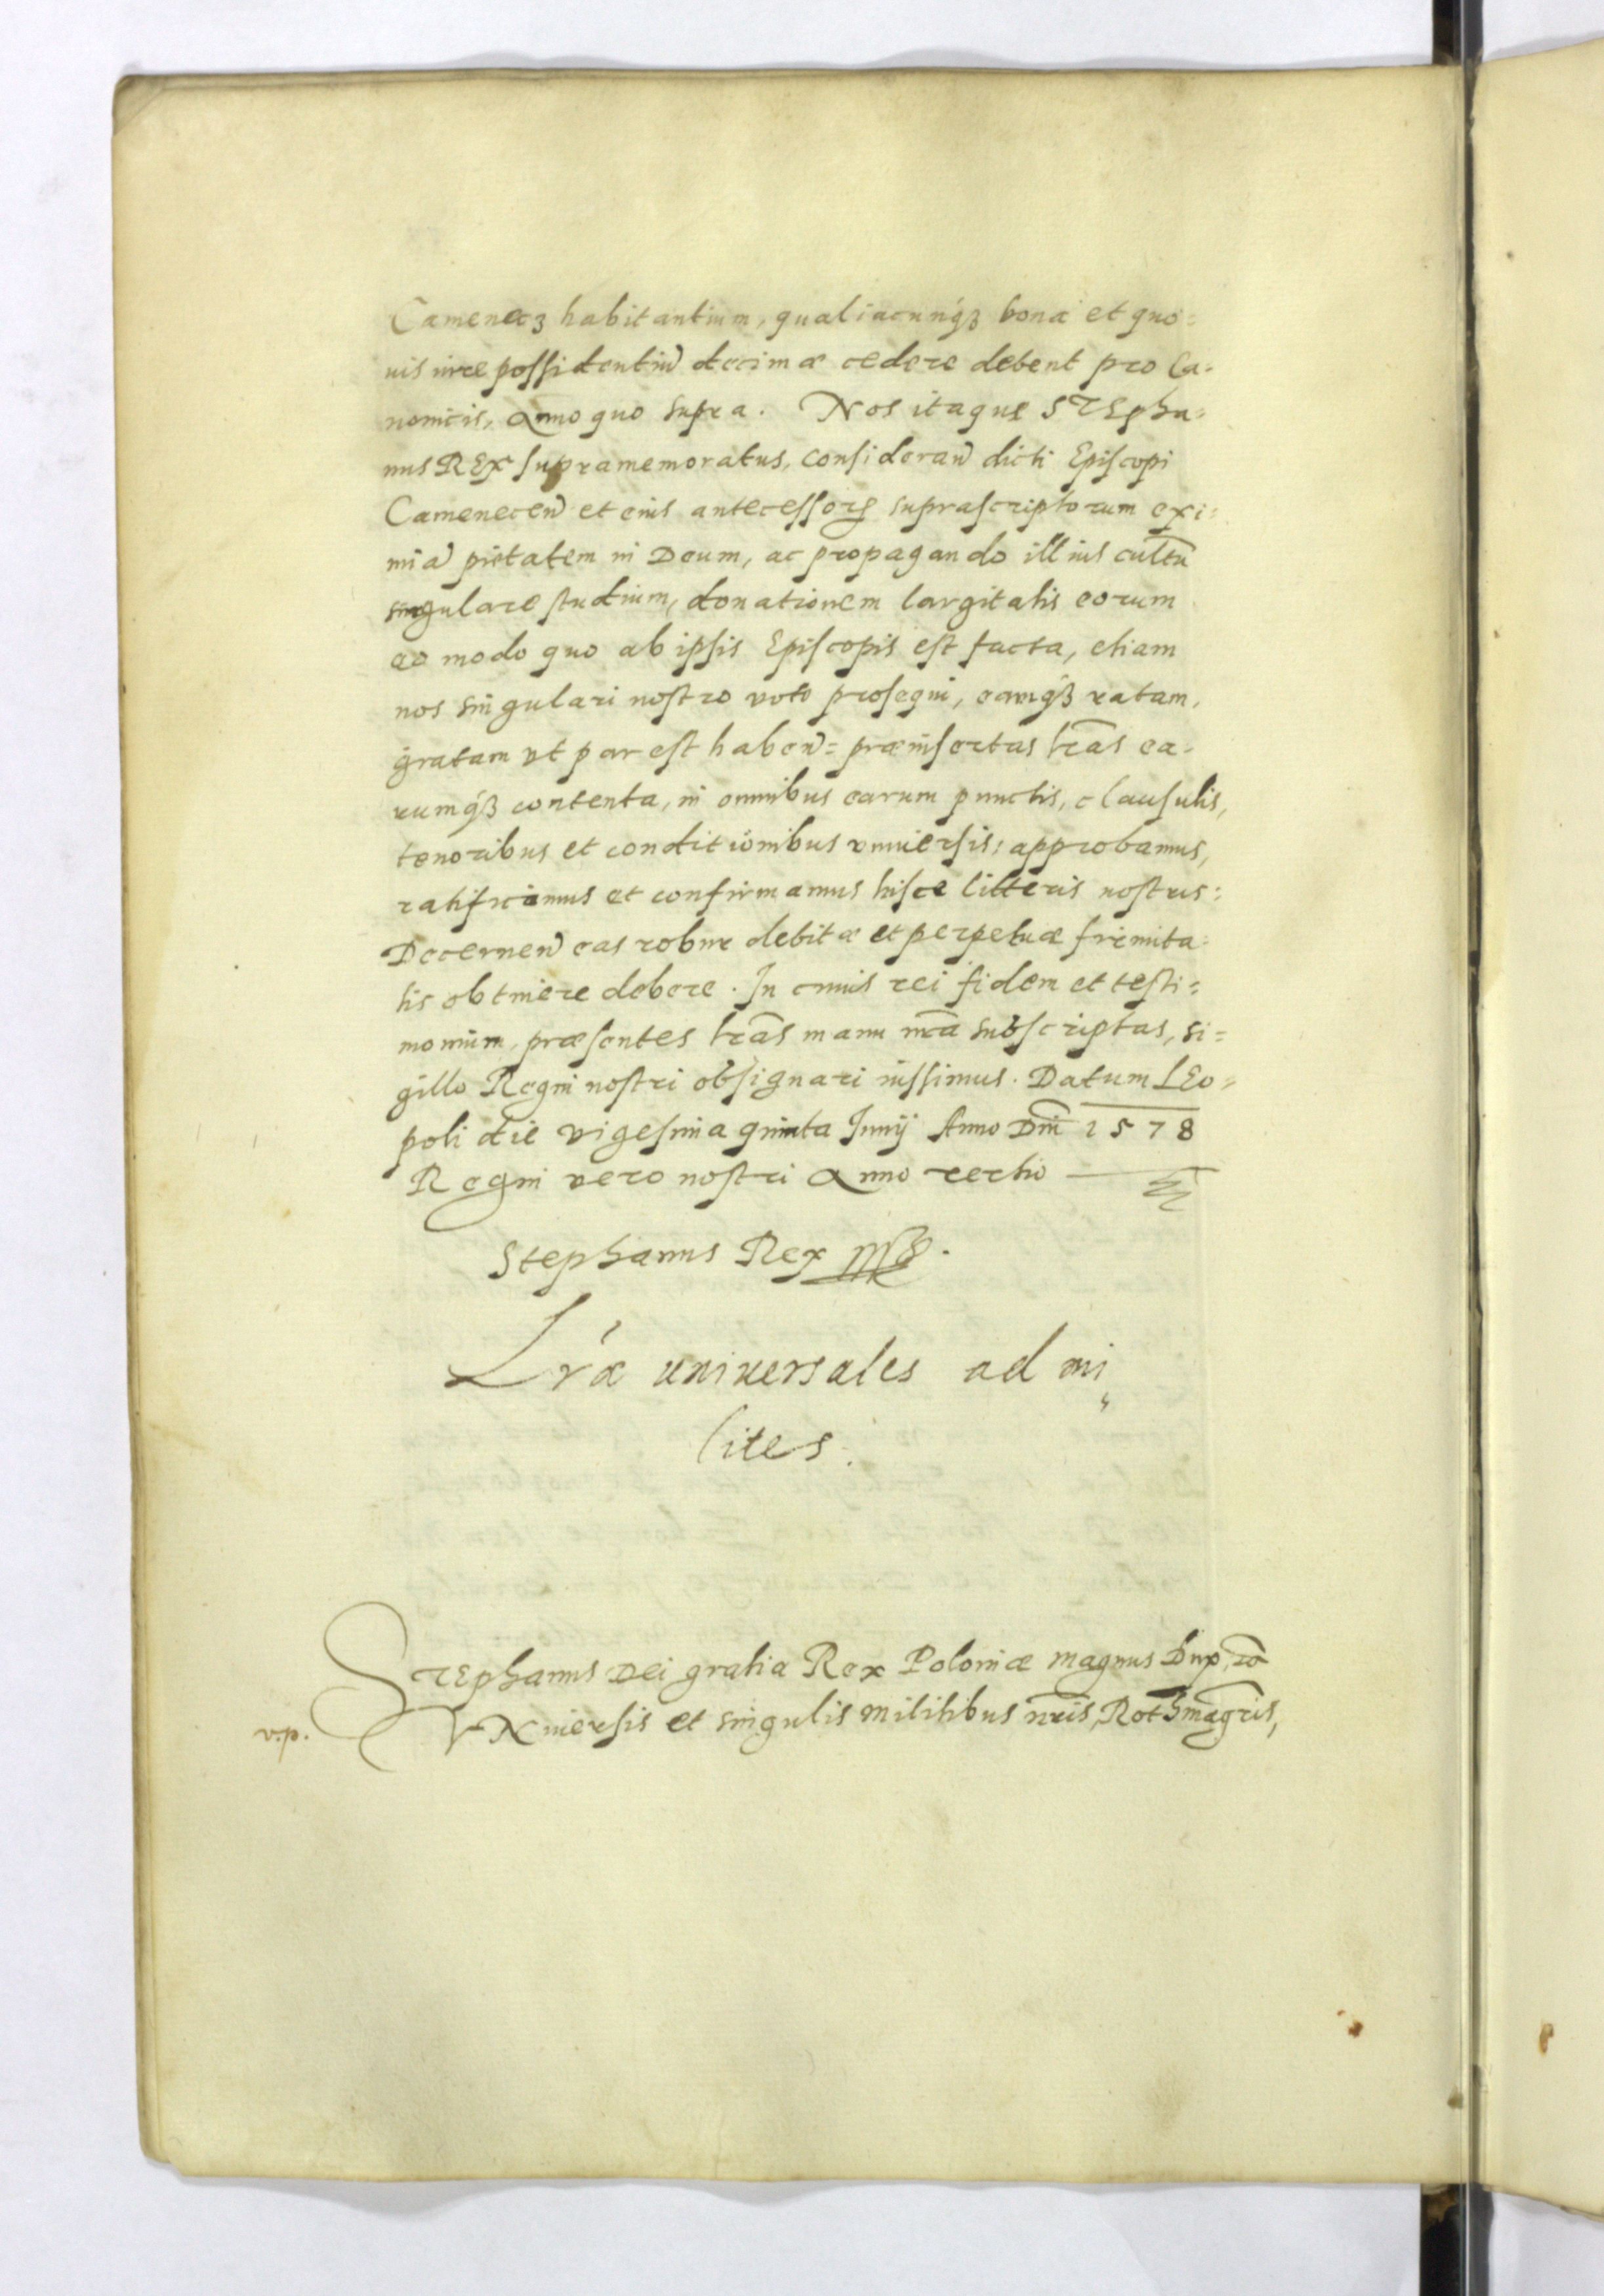 Camenecz habitantium, qualiacunq́ꝫ bona et quo=
uis iure possidentiū decimæ cedere debent pro Ca=
nonicis, Anno quo supra. Nos itaque STEpha=
nus REX supramemoratus, consideran̄ dicti Episcopi
Camenecen̄ et eius antecessorꝝ suprascriptorum exi=
miā pietatem in Deum, ac propagando illius cultū
singulare studium, donationem largitatis eorum
eo modo quo ab ipsis Episcopis est facta, etiam
nos singulari nostro voto prosequi, eamq́ꝫ ratam,
gratam vt par est haben̄= præinsertas lr̄as ea=
rumq́ꝫ contenta, in omnibus earum punctis, clausulis,
tenoribus et conditionibus vniuersis: approbamus,
ratificamus et confirmamus hisce litteris nostris:
Decernen̄ eas robur debitæ et perpetuæ firmita=
tis obtinere debere. In cuius rei fidem et testi=
monium, præsentes lr̄as manu nr̄a subscriptas, si=
gillo Regni nostri obsignari iussimus. Datum LEo=
poli die vigesima quinta Junij Anno Dn̄i 1578
Regni vero nostri Anno tertio
Stephanus Rex
Lr̄æ universales ad mi„
lites.
STEphanus Dei gratia Rex Poloniæ magnus Dux,
v.p. VNiuersis et singulis militibus nr̄is, Rothmagr̄is,